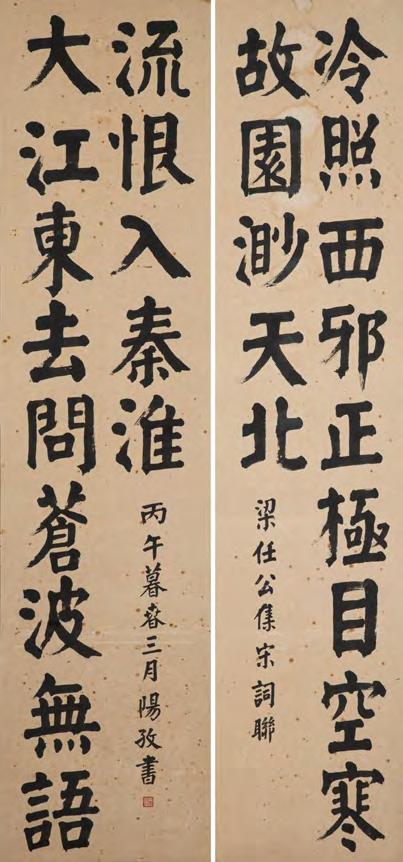 冷照西邪正極目空寒
故園渺天北
梁任公集宋詞聯
大江東去問蒼波無語
流恨入秦淮
丙午暮春三月陽孜書